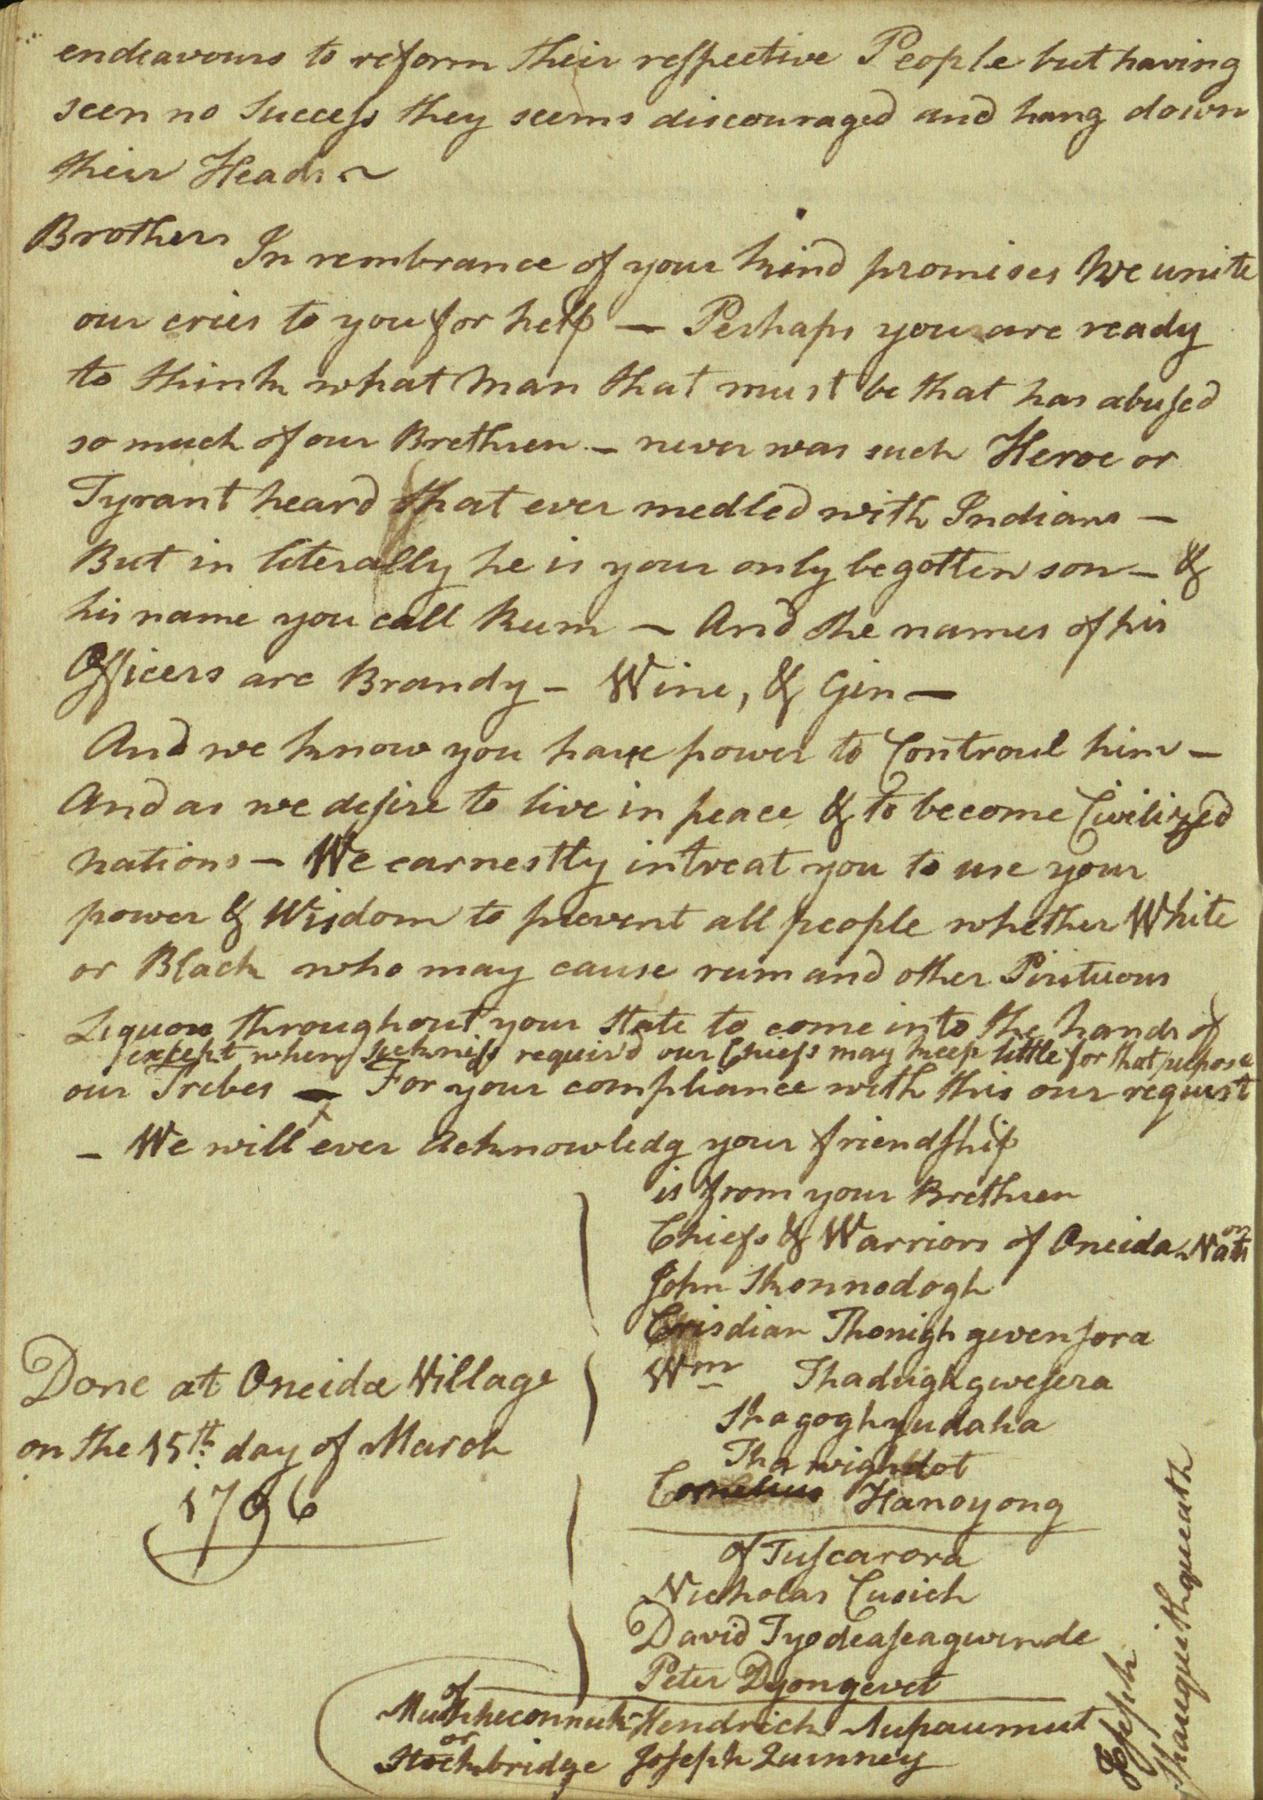 endeavours to reform their respective People but having
seen no Success they seems discouraged and hang down
their Heads ~
Brothers In rembrance of your kind promises We unite
our cries to you for help — Perhaps you are ready
to think what Man that must be that has abused
so much of our Brethren — never was such Heroe or
Tyrant heard that ever medled with Indians —
But in literally he is your only begotten son — &
his name you call Rum — And the names of his
Officers are Brandy — Wine, & Gin —
And we know you have power to Controul him —
And as we desire to live in peace & to become Civilized
nations — We earnestly intreat you to use your
power & Wisdom to prevent all people whether White
or Black who may cause rum and other Pirituous
Liquors throughout your State to come into the hands of
except when sickness requir'd our Chiefs may keep little for that
our Tribes — For your compliance with this our request
— We will ever Acknowledg your friendship
is from your Brethren
Chiefs & Warriors of Oneida Nation
John Skonnodogh
Crisdian Thonighgwensora
Wm Thadighgwesera
Shagoghyudaha
Thawighdot
Cornelius Hanoyong
Done at Oneida Village
on the 15th day of March
1796
of Tuscarora
Nicholas Cusick
David Tyodeaseagwende
Peter Dyongevet
of Muhheconnuk Hendrick Aupaumut
or Stockbridge Joseph Quinney
Joseph
Shauquethqueath